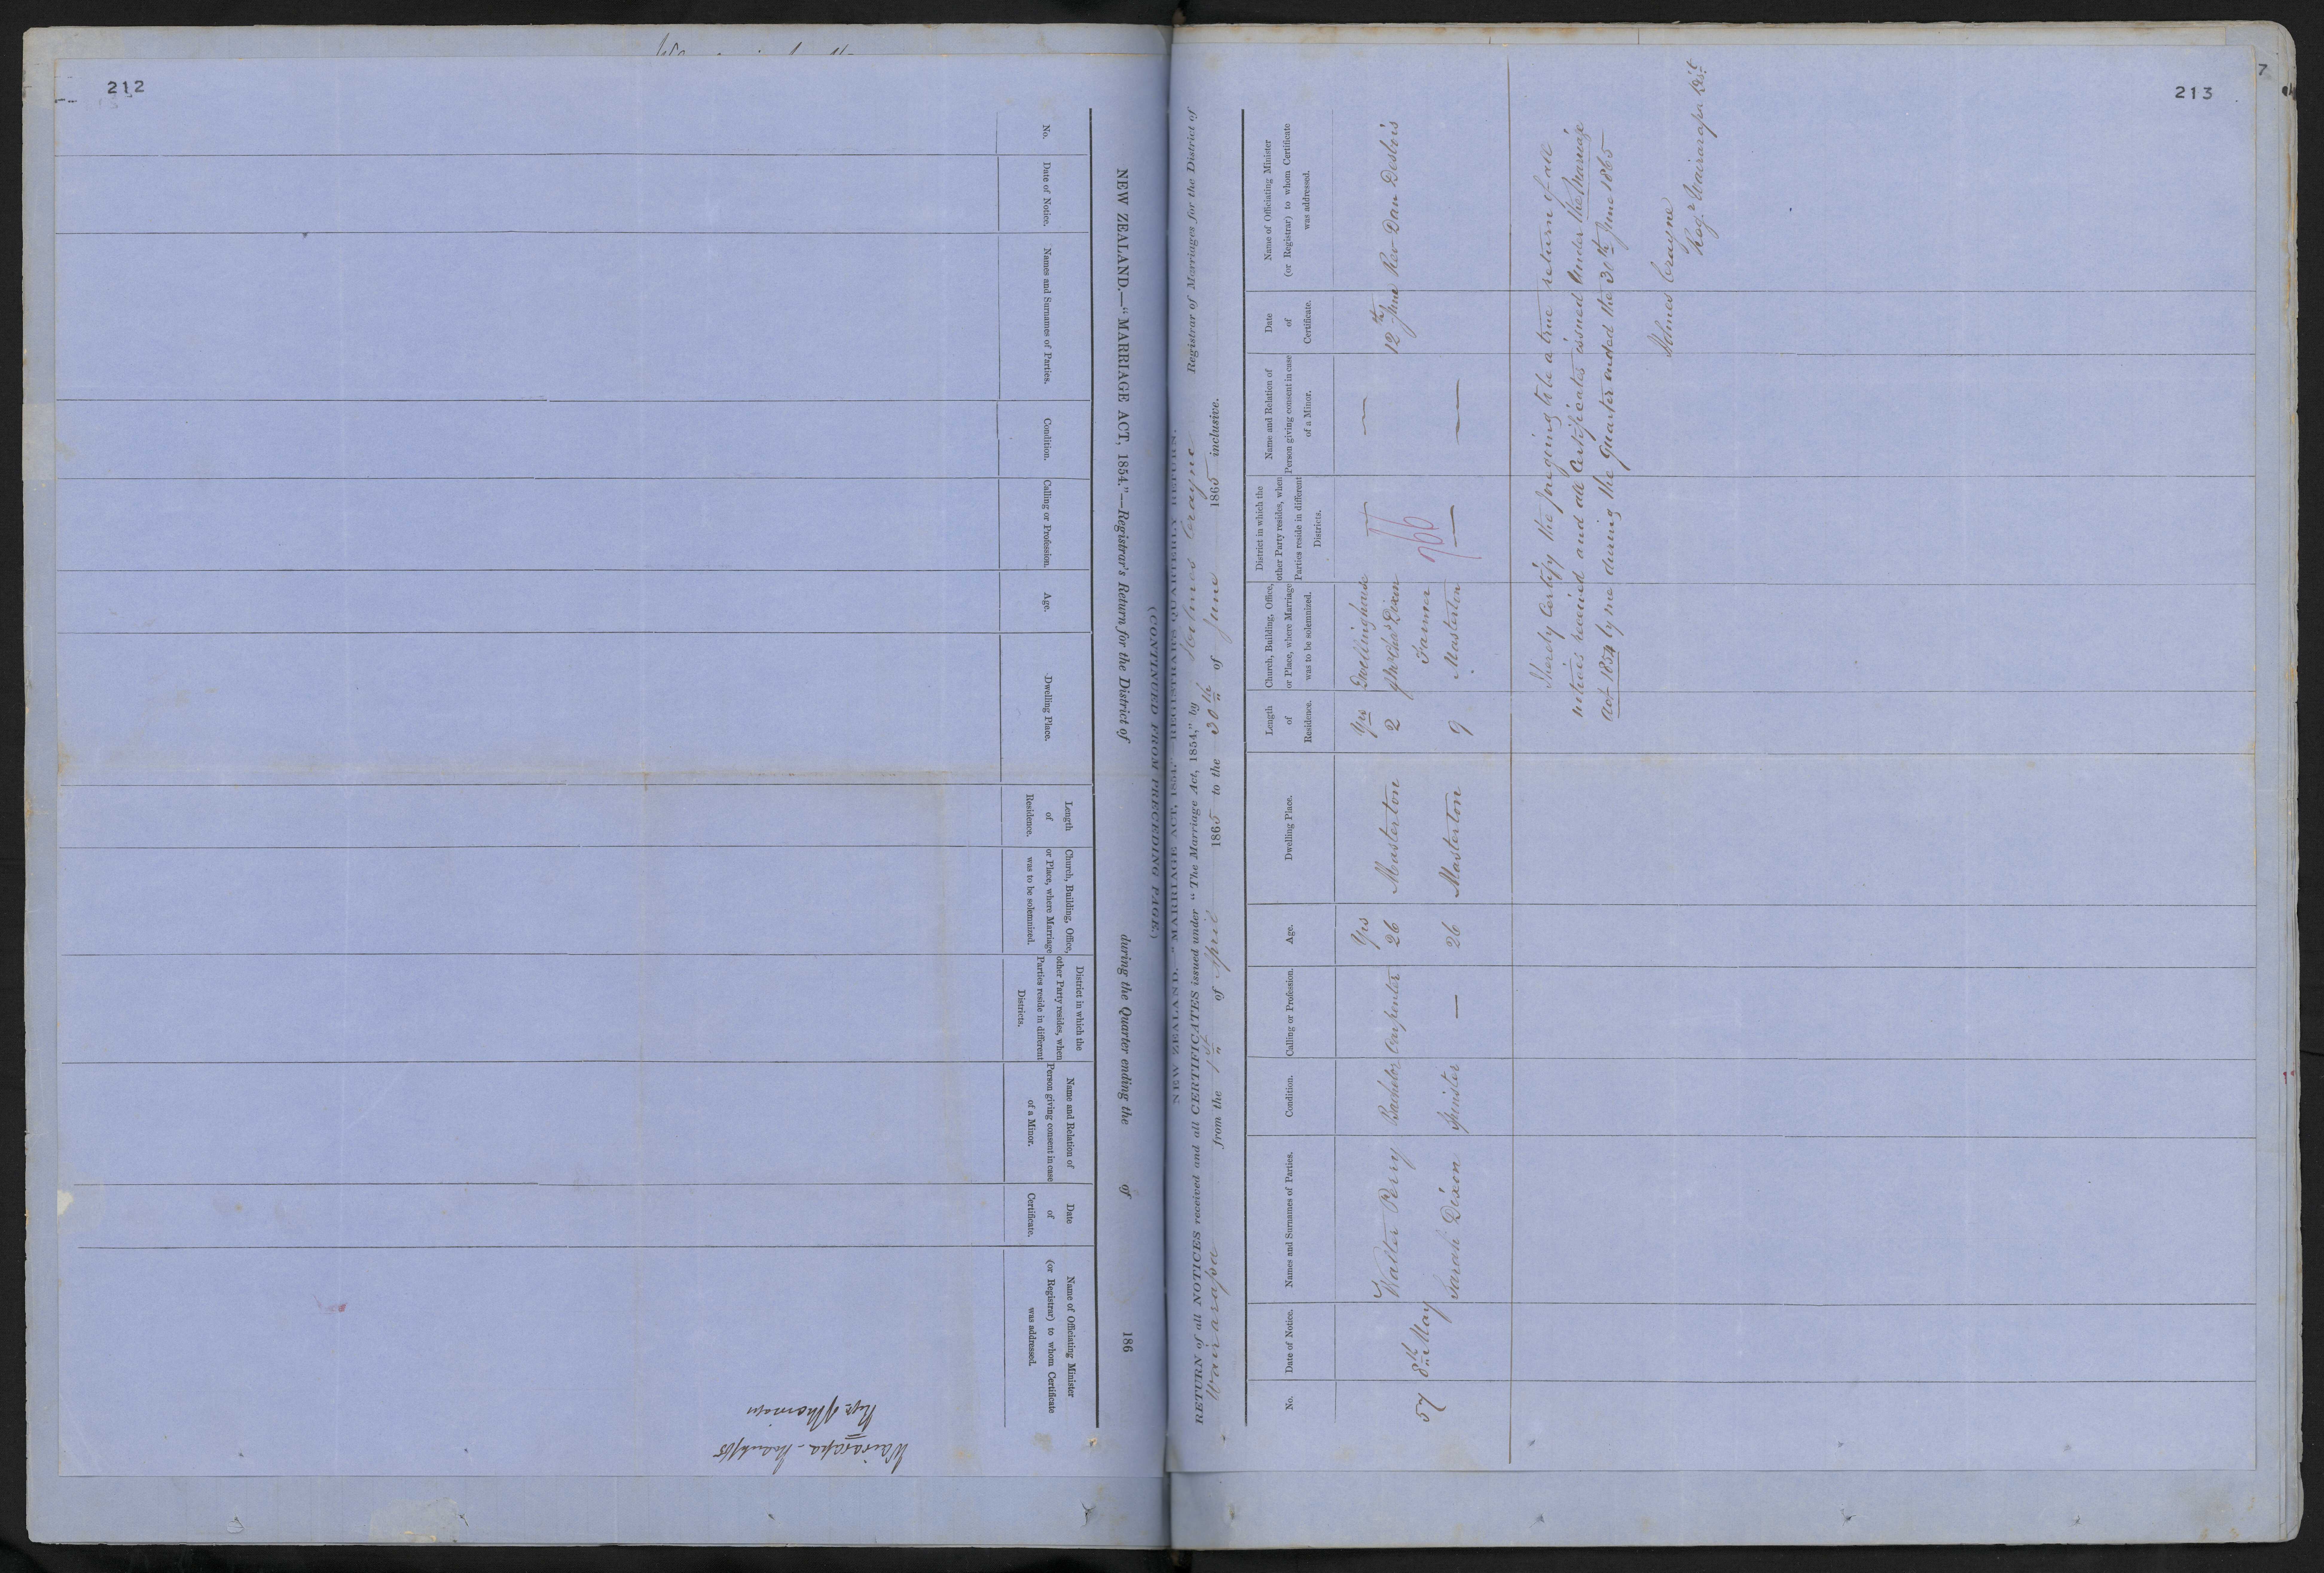 212
NEW ZEALAND.—"MARRIAGE ACT, 1854."—Registrar's Return for the District of during the Quarter ending the of 186
(CONTINUED FROM PRECEDING PAGE.)
No.
Date of Notice.
Names and Surnames of Parties.
Condition.
Calling or Profession.
Age.
Dwelling Place.
Length
of
Residence.
Church, Building, Office,
or Place, where Marriage
was to be solemnized.
District in which the
other Party resides, when
Parties reside in different
Districts.
Name and Relation of
Person giving consent in case
of a Minor.
Date
of
Certificate.
Name of Officiating Minister
(or Registrar) to whom Certificate
was addressed.
Wairarapa
213
7
NEW ZEALAND.—"MARRIAGE ACT, 1854."—REGISTRAR'S QUARTERLY RETURN.
RETURN of all NOTICES received and all CERTIFICATES issued under "The Marriage Act, 1854," by Holmes Crayne Registrar of Marriages for the District of
Wairarapa from the 1st of April 1865 to the 30th of June 1865 inclusive.
No.
Date of Notice.
Names and Surnames of Parties.
Condition.
Calling or Profession.
Age.
Dwelling Place.
Length
of
Residence.
Church, Building, Office,
or Place, where Marriage
was to be solemnized.
District in which the
other Party resides, when
Parties reside in different
Districts.
Name and Relation of
Person giving consent in case
of a Minor.
Date
of
Certificate.
Name of Officiating Minister
(or Registrar) to whom Certificate
was addressed.
57
8th May
Walter Perry
Bachelor
Carpenter
Yrs
26
Masterton
Yrs
2
Dwellinghouse
of Mr Chas Dixon
Farmer
Masterton
—
—
12th June
Rev Dan Desbois
Sarah Dixon
Spinster
—
26
Masterton
9
—
—
966
I hereby Certify the foregoing to be a true return of all
notices received and all Certificates issued Under the Marriage
Act 1854 by me during the Quarter ended the 30th June 1865
Holmes Crayne
Regr Wairarapa Dist